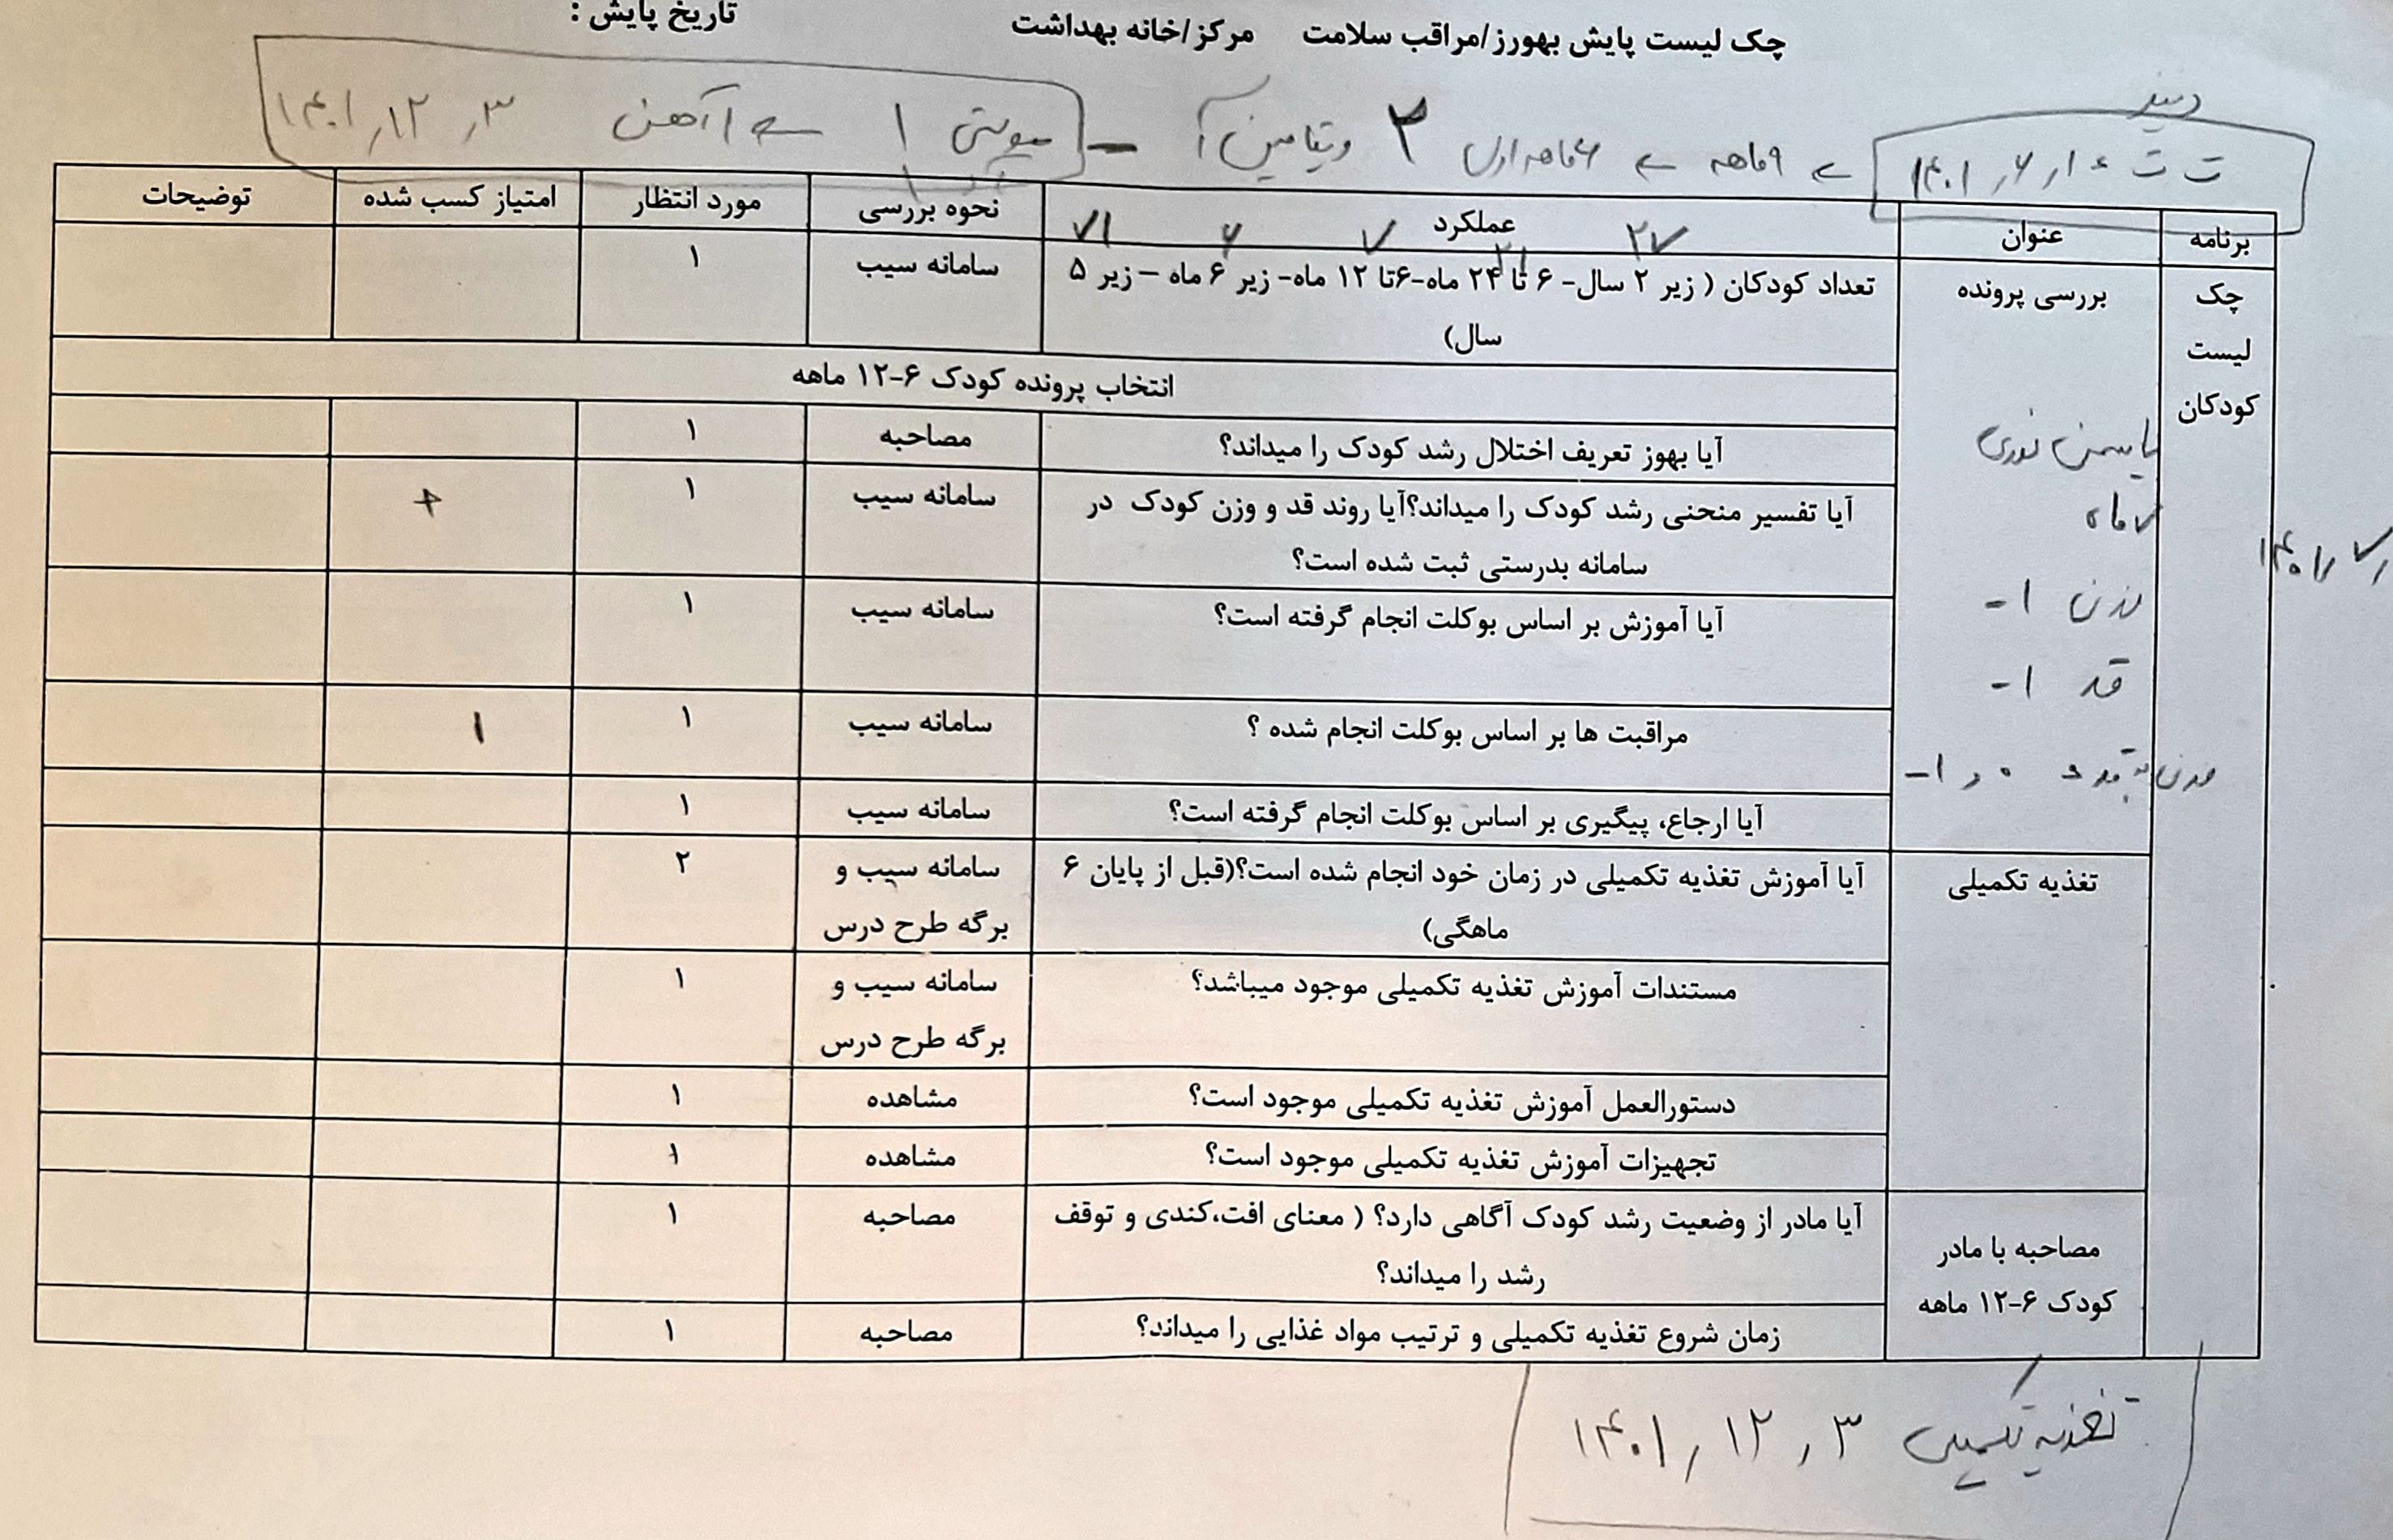 چک لیست پایش بهورز/مراقب سلامت مرکز/خانه بهداشت تاریخ پایش :
ت ت ۱۴۰۱٫۶٫ ← ۹ماهه ← ۶ماهه اول ۳ ویتامین آ – ۱ ← آهن ۱۴۰۱٫۱۲٫۳
برنامه عنوان عملکرد نحوه بررسی مورد انتظار امتیاز کسب شده توضیحات
۲۷ ۲۱ ۷ ۶ ۷۱
چک لیست کودکان
بررسی پرونده
تعداد کودکان ( زیر ۲ سال- ۶ تا ۲۴ ماه-۶تا ۱۲ ماه- زیر ۶ ماه – زیر ۵ سامانه سیب ۱
سال)
انتخاب پرونده کودک ۶-۱۲ ماهه
آیا بهوز تعریف اختلال رشد کودک را میداند؟ مصاحبه ۱
یاسمن نوری
۷ ماه
آیا تفسیر منحنی رشد کودک را میداند؟آیا روند قد و وزن کودک در سامانه سیب ۱ +
سامانه بدرستی ثبت شده است؟
آیا آموزش بر اساس بوکلت انجام گرفته است؟ سامانه سیب ۱
وزن ۱-
قد ۱-
مراقبت ها بر اساس بوکلت انجام شده ؟ سامانه سیب ۱ ۱
وزن به قد ۰ و ۱-
آیا ارجاع، پیگیری بر اساس بوکلت انجام گرفته است؟ سامانه سیب ۱
تغذیه تکمیلی
آیا آموزش تغذیه تکمیلی در زمان خود انجام شده است؟(قبل از پایان ۶ سامانه سیب و ۲
ماهگی) برگه طرح درس
مستندات آموزش تغذیه تکمیلی موجود میباشد؟ سامانه سیب و ۱
برگه طرح درس
دستورالعمل آموزش تغذیه تکمیلی موجود است؟ مشاهده ۱
تجهیزات آموزش تغذیه تکمیلی موجود است؟ مشاهده ۱
مصاحبه با مادر
کودک ۶-۱۲ ماهه
آیا مادر از وضعیت رشد کودک آگاهی دارد؟ ( معنای افت،کندی و توقف مصاحبه ۱
رشد را میداند؟
زمان شروع تغذیه تکمیلی و ترتیب مواد غذایی را میداند؟ مصاحبه ۱
تغذیه تکمیلی ۱۴۰۱٫۱۲٫۳